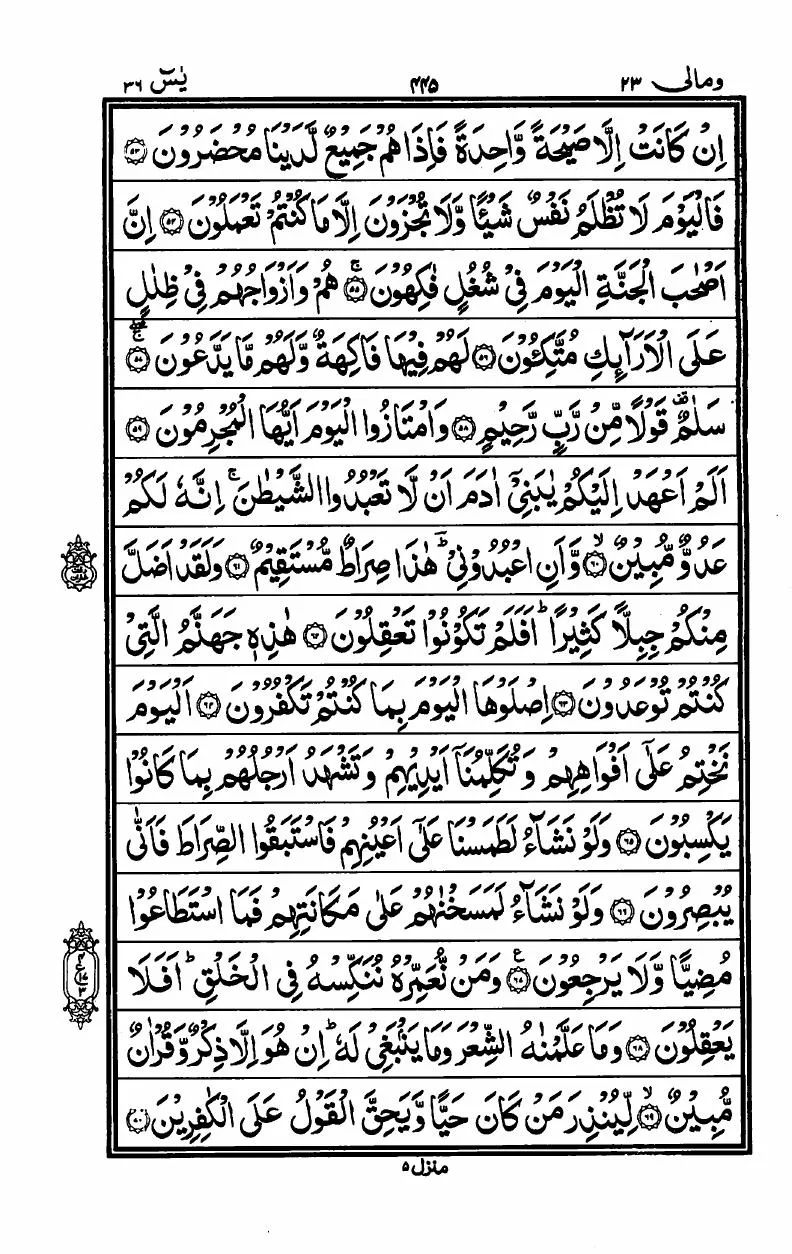 ومالى ٢٣
۴۴۵
يٰسٓ ٣٦
اِنْ كَانَتْ اِلَّا صَيْحَةً وَّاحِدَةً فَاِذَا هُمْ جَمِيْعٌ لَّدَيْنَا مُحْضَرُوْنَ ۝٥٣
فَالْيَوْمَ لَا تُظْلَمُ نَفْسٌ شَيْـًٔا وَّلَا تُجْزَوْنَ اِلَّا مَا كُنْتُمْ تَعْمَلُوْنَ ۝٥٤ اِنَّ
اَصْحٰبَ الْجَنَّةِ الْيَوْمَ فِيْ شُغُلٍ فٰكِهُوْنَ ۚ۝٥٥ هُمْ وَاَزْوَاجُهُمْ فِيْ ظِلٰلٍ
عَلَى الْاَرَآىِٕكِ مُتَّكِـُٔوْنَ ۝٥٦ لَهُمْ فِيْهَا فَاكِهَةٌ وَّلَهُمْ مَّا يَدَّعُوْنَ ۚ۝٥٧
سَلٰمٌ ۣ قَوْلًا مِّنْ رَّبٍّ رَّحِيْمٍ ۝٥٨ وَامْتَازُوا الْيَوْمَ اَيُّهَا الْمُجْرِمُوْنَ ۝٥٩
اَلَمْ اَعْهَدْ اِلَيْكُمْ يٰبَنِيْٓ اٰدَمَ اَنْ لَّا تَعْبُدُوا الشَّيْطٰنَ ۚ اِنَّهٗ لَكُمْ
عَدُوٌّ مُّبِيْنٌ ۙ۝٦٠ وَّاَنِ اعْبُدُوْنِيْ ؕ هٰذَا صِرَاطٌ مُّسْتَقِيْمٌ ۝٦١ وَلَقَدْ اَضَلَّ
مِنْكُمْ جِبِلًّا كَثِيْرًا ؕ اَفَلَمْ تَكُوْنُوْا تَعْقِلُوْنَ ۝٦٢ هٰذِهٖ جَهَنَّمُ الَّتِيْ
كُنْتُمْ تُوْعَدُوْنَ ۝٦٣ اِصْلَوْهَا الْيَوْمَ بِمَا كُنْتُمْ تَكْفُرُوْنَ ۝٦٤ اَلْيَوْمَ
نَخْتِمُ عَلٰٓى اَفْوَاهِهِمْ وَتُكَلِّمُنَآ اَيْدِيْهِمْ وَتَشْهَدُ اَرْجُلُهُمْ بِمَا كَانُوْا
يَكْسِبُوْنَ ۝٦٥ وَلَوْ نَشَآءُ لَطَمَسْنَا عَلٰٓى اَعْيُنِهِمْ فَاسْتَبَقُوا الصِّرَاطَ فَاَنّٰى
يُبْصِرُوْنَ ۝٦٦ وَلَوْ نَشَآءُ لَمَسَخْنٰهُمْ عَلٰى مَكَانَتِهِمْ فَمَا اسْتَطَاعُوْا
مُضِيًّا وَّلَا يَرْجِعُوْنَ ۝٦٧ وَمَنْ نُّعَمِّرْهُ نُنَكِّسْهُ فِي الْخَلْقِ ؕ اَفَلَا
يَعْقِلُوْنَ ۝٦٨ وَمَا عَلَّمْنٰهُ الشِّعْرَ وَمَا يَنْۢبَغِيْ لَهٗ ؕ اِنْ هُوَ اِلَّا ذِكْرٌ وَّقُرْاٰنٌ
مُّبِيْنٌ ۙ۝٦٩ لِّيُنْذِرَ مَنْ كَانَ حَيًّا وَّيَحِقَّ الْقَوْلُ عَلَى الْكٰفِرِيْنَ ۝٧٠
منزل ٥